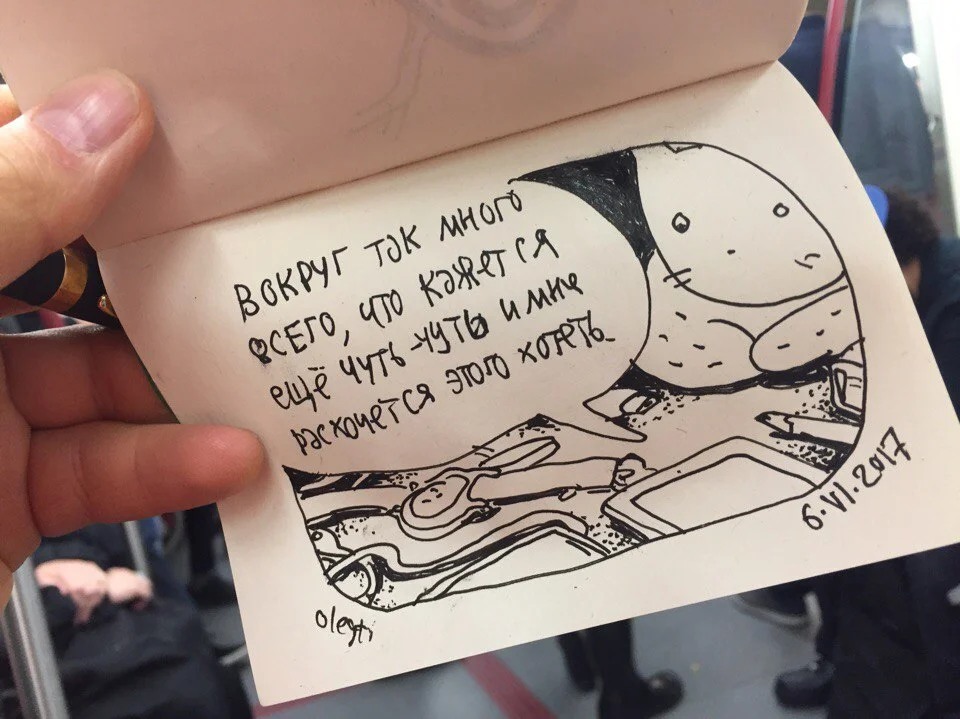 ВОКРУГ ТАК МНОГО
ВСЕГО, ЧТО КАЖЕТСЯ
ЕЩЁ ЧУТЬ-ЧУТЬ И МНЕ
РАСХОЧЕТСЯ ЭТОГО ХОТЕТЬ.
6.VI.2017